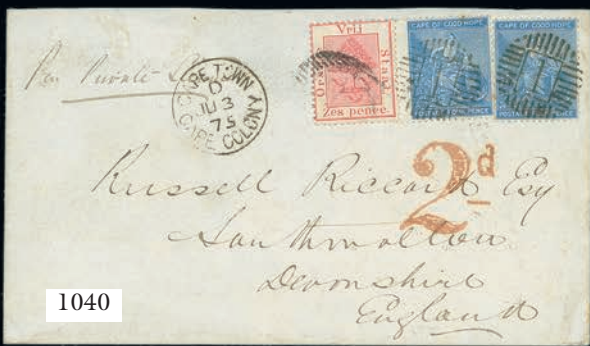 Per Private
CAPE TOWN
D
JU 3
75
CAPE COLONY
Vrij
Or
Staat
Zes pence.
CAPE OF GOOD HOPE
POSTAGE FOUR PENCE
1
CAPE OF GOOD HOPE
POSTAGE FOUR PENCE
1
2d
Russell Riccard Esq
Southmolton
Devonshire
England
1040